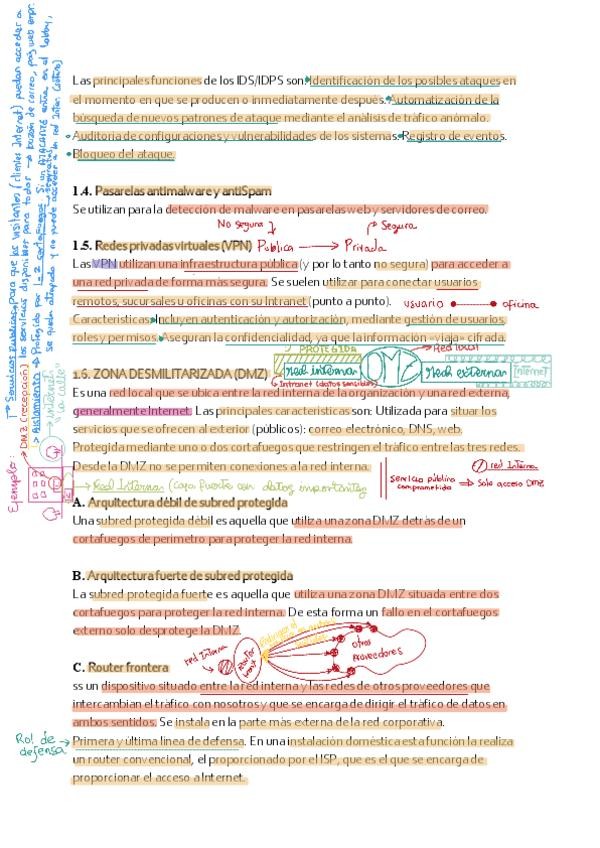 Las principales funciones de los IDS/IDPS son: •Identificación de los posibles ataques en
el momento en que se producen o inmediatamente después. •Automatización de la
búsqueda de nuevos patrones de ataque mediante el análisis de tráfico anómalo.
•Auditoria de configuraciones y vulnerabilidades de los sistemas. •Registro de eventos.
•Bloqueo del ataque.
1.4. Pasarelas antimalware y antiSpam
Se utilizan para la detección de malware en pasarelas web y servidores de correo.
No segura Segura
1.5. Redes privadas virtuales (VPN) Publica → Privada
Las VPN utilizan una infraestructura pública (y por lo tanto no segura) para acceder a
una red privada de forma más segura. Se suelen utilizar para conectar usuarios
remotos, sucursales u oficinas con su Intranet (punto a punto). usuario oficina
Características: •Incluyen autenticación y autorización, mediante gestión de usuarios,
roles y permisos. •Aseguran la confidencialidad, ya que la información «viaja» cifrada.
PROTEGIDA Red local
1.6. ZONA DESMILITARIZADA (DMZ) Red interna DMZ Red externa Internet
Intranet (datos sensibles)
Es una red local que se ubica entre la red interna de la organización y una red externa,
generalmente Internet. Las principales características son: Utilizada para situar los
servicios que se ofrecen al exterior (públicos): correo electrónico, DNS, web.
Protegida mediante uno o dos cortafuegos que restringen el tráfico entre las tres redes.
Desde la DMZ no se permiten conexiones a la red interna.
red Interna
Servicio público comprometido ⇒ Solo acceso DMZ
Red Interna (caja fuerte con datos importantes
A. Arquitectura débil de subred protegida
Una subred protegida débil es aquella que utiliza una zona DMZ detrás de un
cortafuegos de perímetro para proteger la red interna.
B. Arquitectura fuerte de subred protegida
La subred protegida fuerte es aquella que utiliza una zona DMZ situada entre dos
cortafuegos para proteger la red interna. De esta forma un fallo en el cortafuegos
externo solo desprotege la DMZ.
red Interna
otros
proveedores
C. Router frontera
ss un dispositivo situado entre la red interna y las redes de otros proveedores que
intercambian el tráfico con nosotros y que se encarga de dirigir el tráfico de datos en
ambos sentidos. Se instala en la parte más externa de la red corporativa.
Rol de
defensa
Primera y última línea de defensa. En una instalación doméstica esta función la realiza
un router convencional, el proporcionado por el ISP, que es el que se encarga de
proporcionar el acceso a Internet.
Ejemplo:
Servicios públicos → para que los visitantes (clientes Internet) puedan acceder a
DMZ (recepción) los servicios disponibles para todos → buzón de correo, pag web empr.
Aislamiento → Protegido por 1-2 cortafuegos. Si un atacante entra en el lobby,
se queda atrapado y no puede acceder a la red inter.
Internet
"la calle"